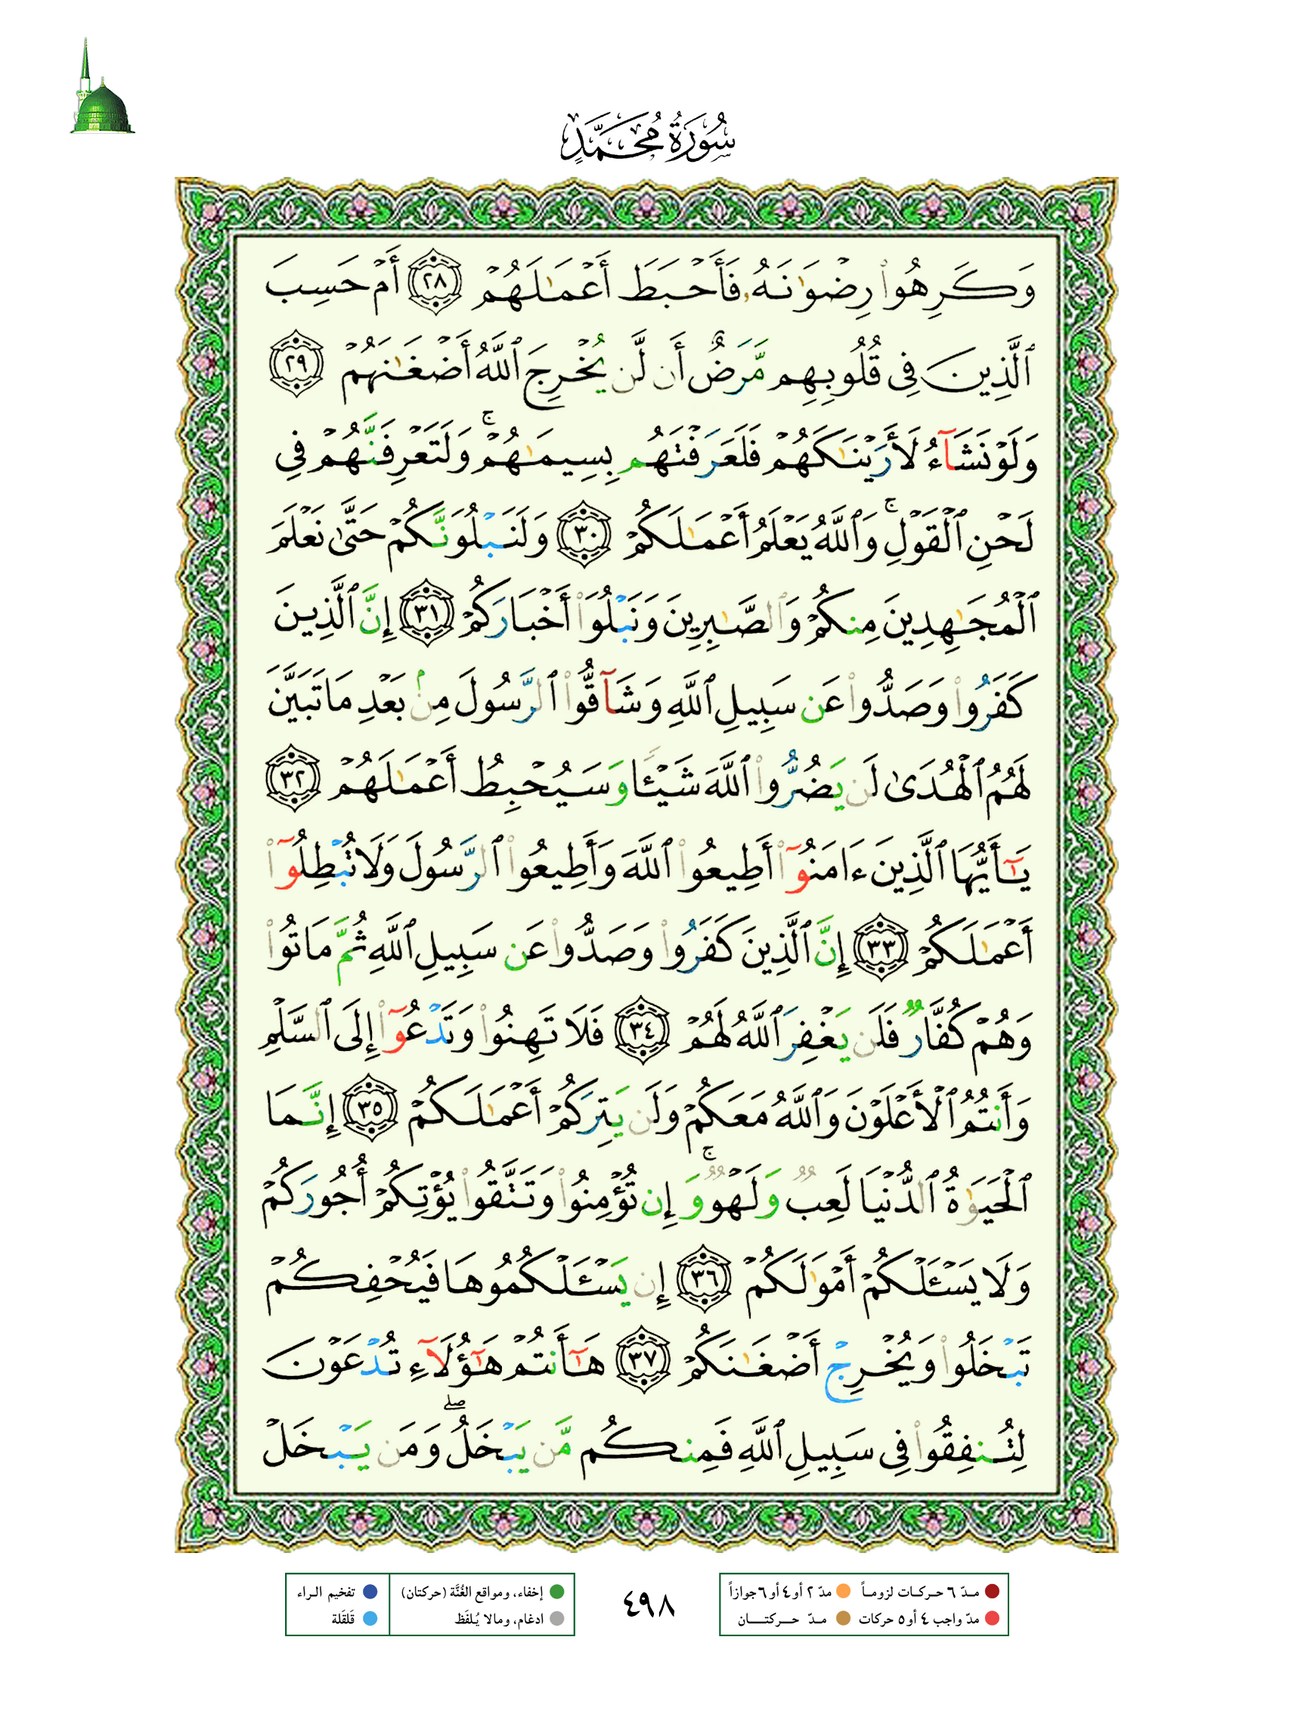 سُورَةُ مُحَمَّدٍ
وَكَرِهُوا۟ رِضْوَٰنَهُۥ فَأَحْبَطَ أَعْمَـٰلَهُمْ ٢٨ أَمْ حَسِبَ
ٱلَّذِينَ فِى قُلُوبِهِم مَّرَضٌ أَن لَّن يُخْرِجَ ٱللَّهُ أَضْغَـٰنَهُمْ ٢٩
وَلَوْ نَشَآءُ لَأَرَيْنَـٰكَهُمْ فَلَعَرَفْتَهُم بِسِيمَـٰهُمْ ۚ وَلَتَعْرِفَنَّهُمْ فِى
لَحْنِ ٱلْقَوْلِ ۚ وَٱللَّهُ يَعْلَمُ أَعْمَـٰلَكُمْ ٣٠ وَلَنَبْلُوَنَّكُمْ حَتَّىٰ نَعْلَمَ
ٱلْمُجَـٰهِدِينَ مِنكُمْ وَٱلصَّـٰبِرِينَ وَنَبْلُوَا۟ أَخْبَارَكُمْ ٣١ إِنَّ ٱلَّذِينَ
كَفَرُوا۟ وَصَدُّوا۟ عَن سَبِيلِ ٱللَّهِ وَشَآقُّوا۟ ٱلرَّسُولَ مِنۢ بَعْدِ مَا تَبَيَّنَ
لَهُمُ ٱلْهُدَىٰ لَن يَضُرُّوا۟ ٱللَّهَ شَيْـًٔا وَسَيُحْبِطُ أَعْمَـٰلَهُمْ ٣٢
يَـٰٓأَيُّهَا ٱلَّذِينَ ءَامَنُوٓا۟ أَطِيعُوا۟ ٱللَّهَ وَأَطِيعُوا۟ ٱلرَّسُولَ وَلَا تُبْطِلُوٓا۟
أَعْمَـٰلَكُمْ ٣٣ إِنَّ ٱلَّذِينَ كَفَرُوا۟ وَصَدُّوا۟ عَن سَبِيلِ ٱللَّهِ ثُمَّ مَاتُوا۟
وَهُمْ كُفَّارٌ فَلَن يَغْفِرَ ٱللَّهُ لَهُمْ ٣٤ فَلَا تَهِنُوا۟ وَتَدْعُوٓا۟ إِلَى ٱلسَّلْمِ
وَأَنتُمُ ٱلْأَعْلَوْنَ وَٱللَّهُ مَعَكُمْ وَلَن يَتِرَكُمْ أَعْمَـٰلَكُمْ ٣٥ إِنَّمَا
ٱلْحَيَوٰةُ ٱلدُّنْيَا لَعِبٌ وَلَهْوٌ ۚ وَإِن تُؤْمِنُوا۟ وَتَتَّقُوا۟ يُؤْتِكُمْ أُجُورَكُمْ
وَلَا يَسْـَٔلْكُمْ أَمْوَٰلَكُمْ ٣٦ إِن يَسْـَٔلْكُمُوهَا فَيُحْفِكُمْ
تَبْخَلُوا۟ وَيُخْرِجْ أَضْغَـٰنَكُمْ ٣٧ هَـٰٓأَنتُمْ هَـٰٓؤُلَآءِ تُدْعَوْنَ
لِتُنفِقُوا۟ فِى سَبِيلِ ٱللَّهِ فَمِنكُم مَّن يَبْخَلُ ۖ وَمَن يَبْخَلْ
مدّ ٦ حركات لزوماً مدّ ٢ أو ٤ أو ٦ جوازاً
مدّ واجب ٤ أو ٥ حركات مدّ حركتان
٤٩٨
إخفاء، ومواقع الغُنَّة (حركتان) تفخيم الراء
ادغام، ومالا يُلفَظ قَلقَلة